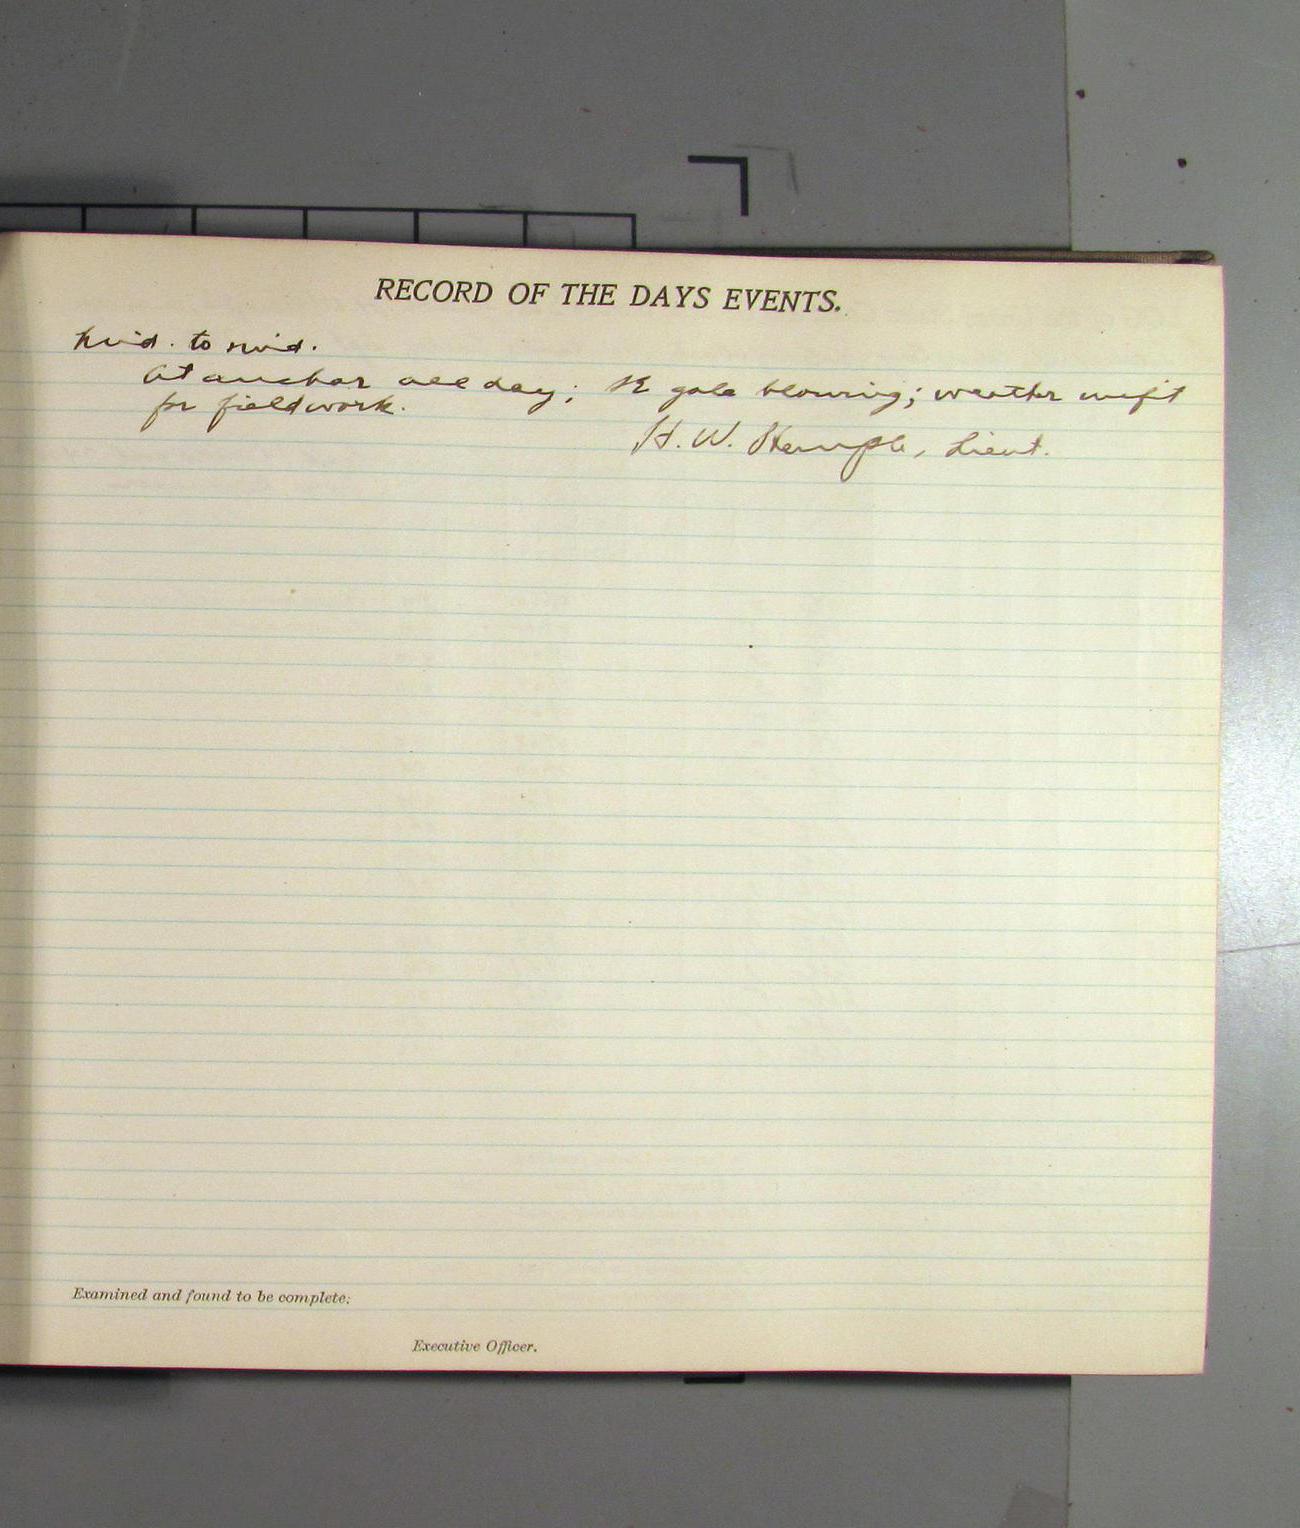 RECORD OF THE DAYS EVENTS.
Mid. to mid.
At anchor all day; SE gale blowing; weather unfit
for fieldwork.
H. W. Hemple, Lieut.
Examined and found to be complete:
Executive Officer.